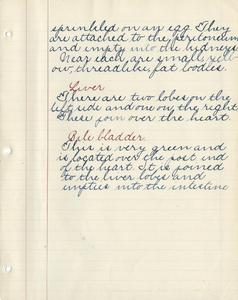 sprinkled on an egg. They
are attached to the peritoneum
and empty into the kidneys
Near each, are small yell-
ow, threadlike fat bodies.
Liver
There are two lobes on the
left side and one on the right
These join over the heart.
Bile bladder
This is very green and
is located over the post end
of the heart. It is joined
to the liver lobes and
empties into the intestine